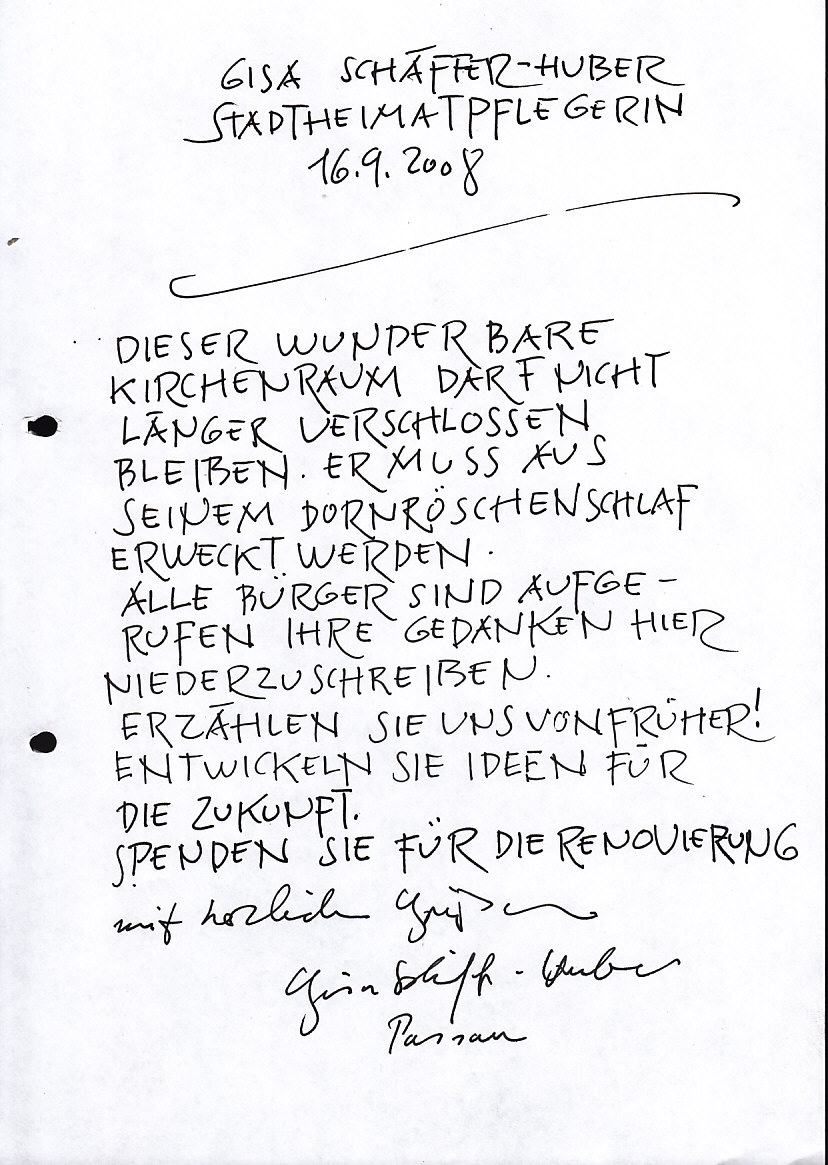 GISA SCHÄFFER-HUBER
STADTHEIMATPFLEGERIN
16.9.2008
DIESER WUNDERBARE
KIRCHENRAUM DARF NICHT
LÄNGER VERSCHLOSSEN
BLEIBEN. ER MUSS AUS
SEINEM DORNRÖSCHENSCHLAF
ERWECKT WERDEN.
ALLE BÜRGER SIND AUFGE-
RUFEN IHRE GEDANKEN HIER
NIEDERZUSCHREIBEN.
ERZÄHLEN SIE UNS VON FRÜHER!
ENTWICKELN SIE IDEEN FÜR
DIE ZUKUNFT.
SPENDEN SIE FÜR DIE RENOVIERUNG
mit herzlichen Grüßen
Gisa Schäffer-Huber
Passau